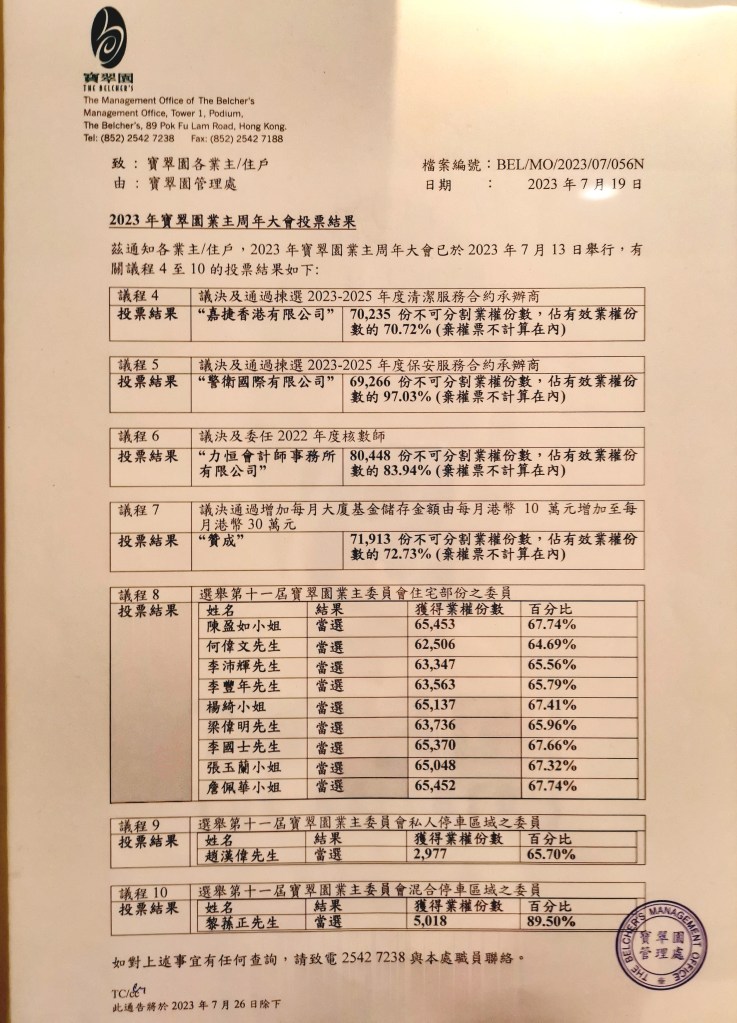 寶翠園
THE BELCHER'S
The Management Office of The Belcher's
Management Office, Tower 1, Podium,
The Belcher's, 89 Pok Fu Lam Road, Hong Kong.
Tel: (852) 2542 7238 Fax: (852) 2542 7188
致 : 寶翠園各業主/住戶 檔案編號:BEL/MO/2023/07/056N
由 : 寶翠園管理處 日期 : 2023 年 7 月 19 日
2023 年寶翠園業主周年大會投票結果
茲通知各業主/住戶,2023 年寶翠園業主周年大會已於 2023 年 7 月 13 日舉行,有
關議程 4 至 10 的投票結果如下:
議程 4 議決及通過揀選 2023-2025 年度清潔服務合約承辦商
投票結果 “嘉捷香港有限公司” 70,235 份不可分割業權份數,佔有效業權份
數的 70.72% (棄權票不計算在內)
議程 5 議決及通過揀選 2023-2025 年度保安服務合約承辦商
投票結果 “警衛國際有限公司” 69,266 份不可分割業權份數,佔有效業權份
數的 97.03% (棄權票不計算在內)
議程 6 議決及委任 2022 年度核數師
投票結果 “力恒會計師事務所 80,448 份不可分割業權份數,佔有效業權份
有限公司” 數的 83.94% (棄權票不計算在內)
議程 7 議決通過增加每月大廈基金儲存金額由每月港幣 10 萬元增加至每
月港幣 30 萬元
投票結果 “贊成” 71,913 份不可分割業權份數,佔有效業權份
數的 72.73% (棄權票不計算在內)
議程 8 選舉第十一屆寶翠園業主委員會住宅部份之委員
投票結果 姓名 結果 獲得業權份數 百分比
陳盈如小姐 當選 65,453 67.74%
何偉文先生 當選 62,506 64.69%
李沛輝先生 當選 63,347 65.56%
李豐年先生 當選 63,563 65.79%
楊綺小姐 當選 65,137 67.41%
梁偉明先生 當選 63,736 65.96%
李國士先生 當選 65,370 67.66%
張玉蘭小姐 當選 65,048 67.32%
詹佩華小姐 當選 65,452 67.74%
議程 9 選舉第十一屆寶翠園業主委員會私人停車區域之委員
投票結果 姓名 結果 獲得業權份數 百分比
趙漢偉先生 當選 2,977 65.70%
議程 10 選舉第十一屆寶翠園業主委員會混合停車區域之委員
投票結果 姓名 結果 獲得業權份數 百分比
黎蓀正先生 當選 5,018 89.50%
THE BELCHER'S MANAGEMENT OFFICE
寶翠園
管理處
如對上述事宜有任何查詢,請致電 2542 7238 與本處職員聯絡。
TC/
此通告將於 2023 年 7 月 26 日除下